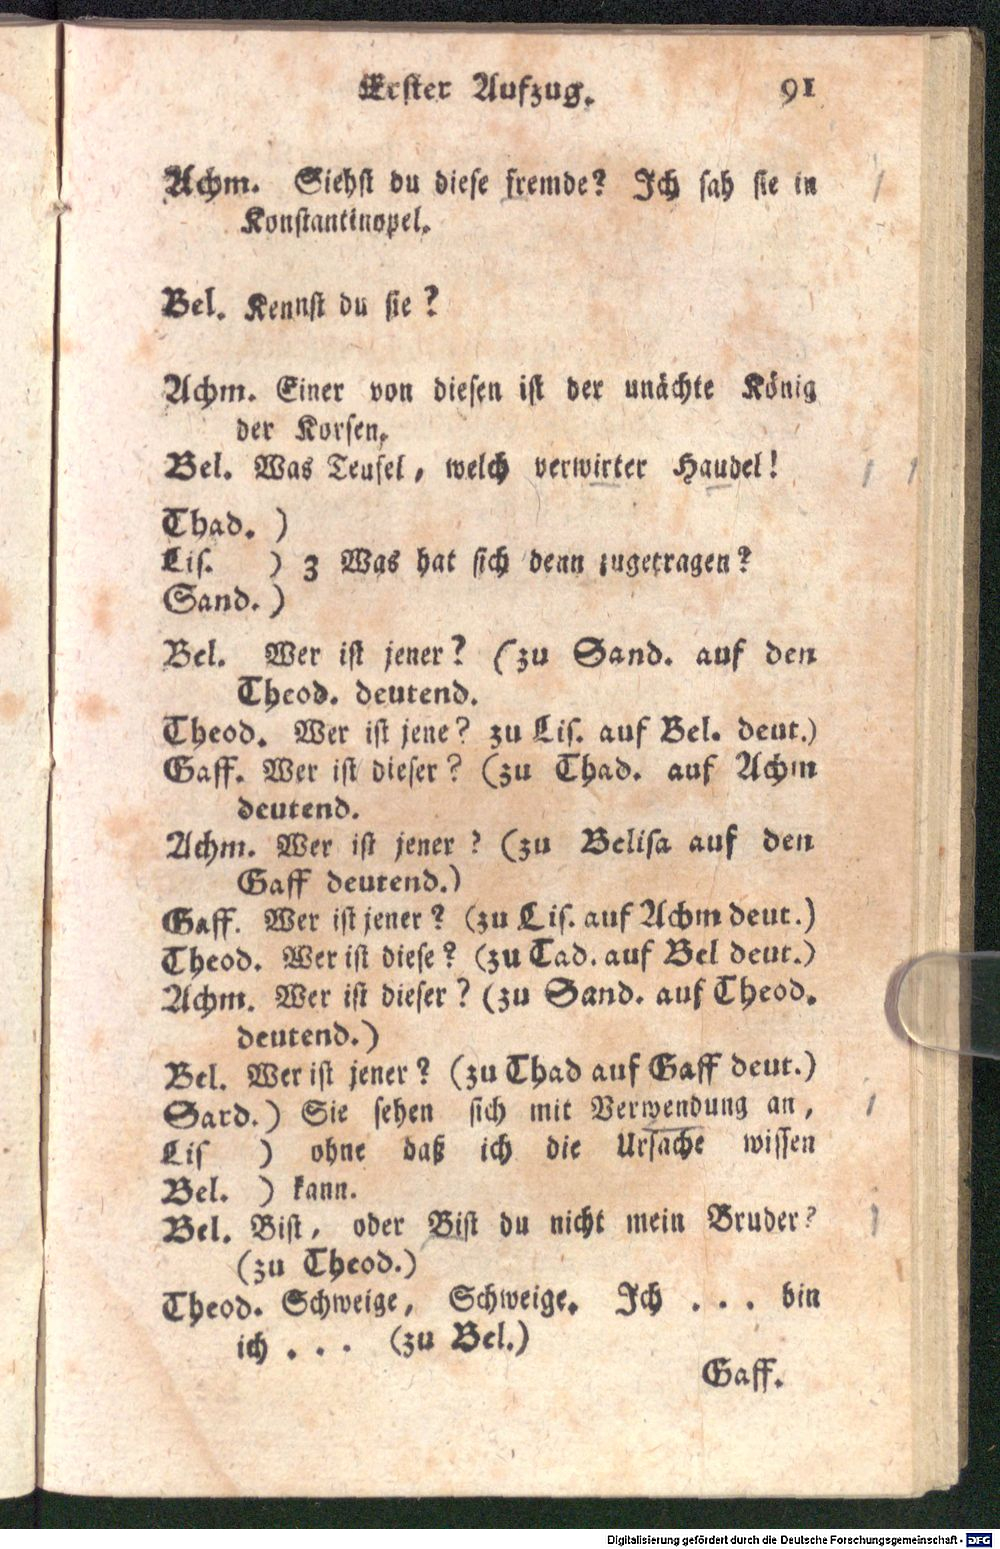 Erster Aufzug. 91
Achm. Siehst du diese fremde? Ich sah sie in
Konstantinopel.
Bel. Kennst du sie?
Achm. Einer von diesen ist der unächte König
der Korsen.
Bel. Was Teufel, welch verwirter Haudel!
Thad. )
Lis. ) 3 Was hat sich denn zugetragen?
Sand. )
Bel. Wer ist jener? (zu Sand. auf den
Theod. deutend.
Theod. Wer ist jene? zu Lis. auf Bel. deut.)
Gaff. Wer ist dieser? (zu Thad. auf Achm
deutend.
Achm. Wer ist jener? (zu Belisa auf den
Gaff deutend.)
Gaff. Wer ist jener? (zu Lis. auf Achm deut.)
Theod. Wer ist diese? (zu Tad. auf Bel deut.)
Achm. Wer ist dieser? (zu Sand. auf Theod.
deutend.)
Bel. Wer ist jener? (zu Thad auf Gaff deut.)
Sard. ) Sie sehen sich mit Verwendung an,
Lis ) ohne daß ich die Ursache wissen
Bel. ) kann.
Bel. Bist, oder Bist du nicht mein Bruder?
(zu Theod.)
Theod. Schweige, Schweige. Ich . . . bin
ich . . . (zu Bel.)
Gaff.
Digitalisierung gefördert durch die Deutsche Forschungsgemeinschaft - DFG